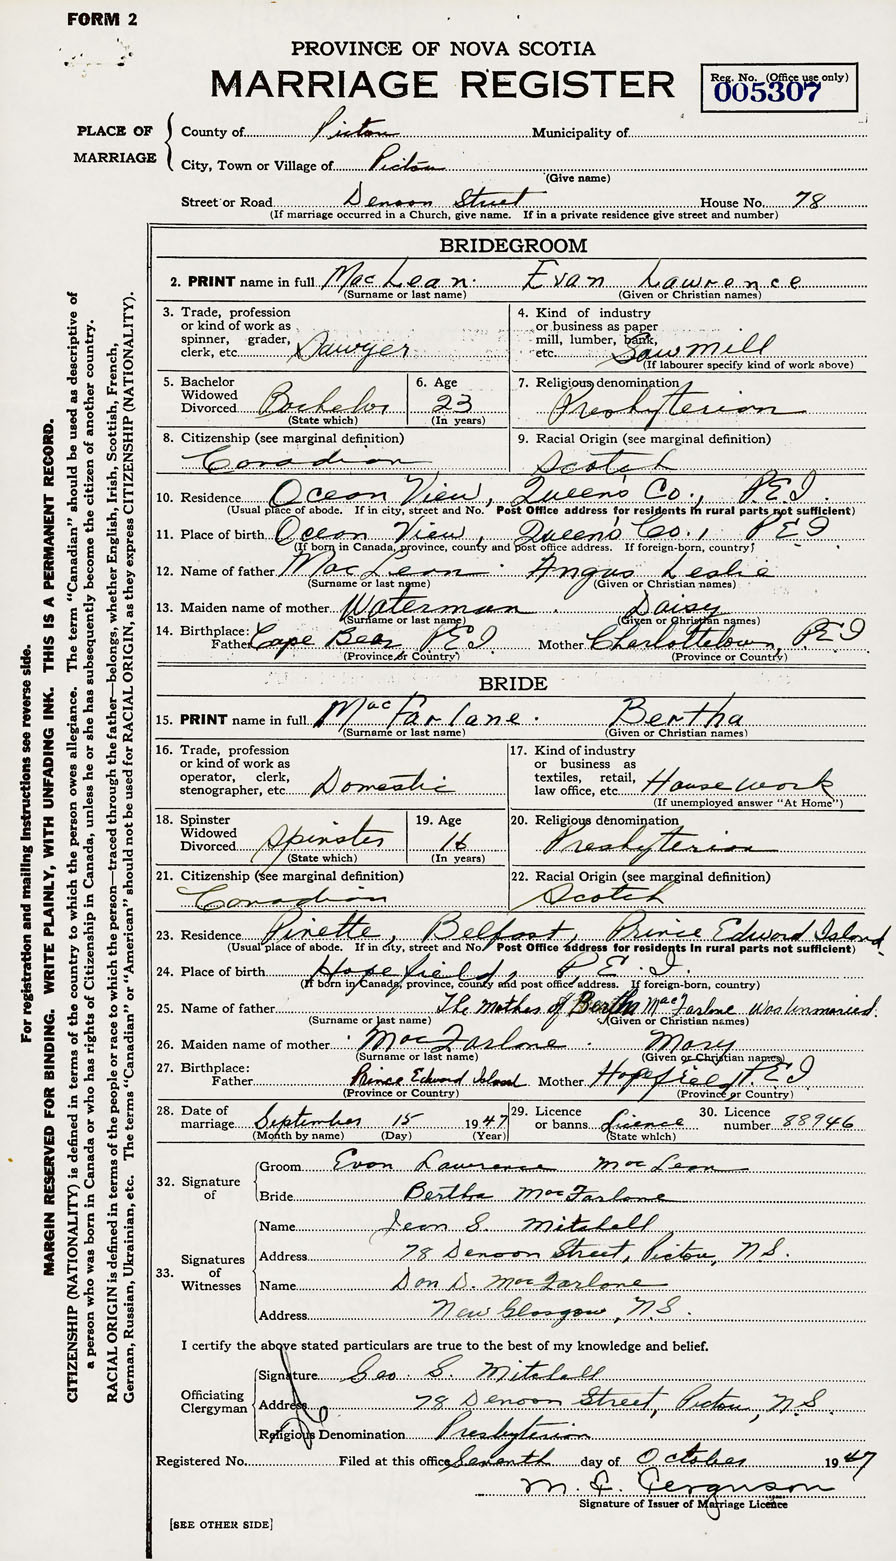 FORM 2
PROVINCE OF NOVA SCOTIA
MARRIAGE REGISTER
Reg. No. (Office use only)
005307
PLACE OF MARRIAGE
County of Pictou Municipality of
City, Town or Village of Pictou
(Give name)
Street or Road Denoon Street House No. 78
(If marriage occurred in a Church, give name. If in a private residence give street and number)
BRIDEGROOM
2. PRINT name in full MacLean. Evan Lawrence
(Surname or last name) (Given or Christian names)
3. Trade, profession or kind of work as spinner, grader, clerk, etc. Sawyer
4. Kind of industry or business as paper mill, lumber, bank, etc. Saw mill
(If labourer specify kind of work above)
5. Bachelor Widowed Divorced Bachelor
(State which)
6. Age 23
(In years)
7. Religious denomination Presbyterian
8. Citizenship (see marginal definition) Canadian
9. Racial Origin (see marginal definition) Scotch
10. Residence Ocean View, Queen's Co., P.E.I.
(Usual place of abode. If in city, street and No. Post Office address for residents in rural parts not sufficient)
11. Place of birth Ocean View, Queen's Co., P E I
(If born in Canada, province, county and post office address. If foreign-born, country)
12. Name of father MacLean. Angus Leslie
(Surname or last name) (Given or Christian names)
13. Maiden name of mother Waterman. Daisy
(Surname or last name) (Given or Christian names)
14. Birthplace: Father Cape Bear P.E.I. Mother Charlottetown, P.E.I
(Province or Country) (Province or Country)
BRIDE
15. PRINT name in full MacFarlane. Bertha
(Surname or last name) (Given or Christian names)
16. Trade, profession or kind of work as operator, clerk, stenographer, etc. Domestic
17. Kind of industry or business as textiles, retail, law office, etc. House work
(If unemployed answer "At Home")
18. Spinster Widowed Divorced Spinster
(State which)
19. Age 16
(In years)
20. Religious denomination Presbyterian
21. Citizenship (see marginal definition) Canadian
22. Racial Origin (see marginal definition) Scotch
23. Residence Pinette, Belfast, Prince Edward Island
(Usual place of abode. If in city, street and No. Post Office address for residents in rural parts not sufficient)
24. Place of birth Hopefield, P.E.I.
(If born in Canada, province, county and post office address. If foreign-born, country)
25. Name of father The mother of Bertha MacFarlane was unmarried.
(Surname or last name) (Given or Christian names)
26. Maiden name of mother MacFarlane. Mary
(Surname or last name) (Given or Christian names)
27. Birthplace: Father Prince Edward Island Mother Hopefield P.E.I
(Province or Country) (Province or Country)
28. Date of marriage September 15 1947
(Month by name) (Day) (Year)
29. Licence or banns Licence
(State which)
30. Licence number 88946
32. Signature of
Groom Evan Lawrence MacLean
Bride Bertha MacFarlane
33. Signatures of Witnesses
Name Jean S. Mitchell
Address 78 Denoon Street, Pictou, N.S.
Name Don D. MacFarlane
Address New Glasgow, N.S.
I certify the above stated particulars are true to the best of my knowledge and belief.
Officiating Clergyman
Signature Geo. S. Mitchell
Address 78 Denoon Street, Pictou, N.S.
Religious Denomination Presbyterian
Registered No. Filed at this office Seventh day of October 1947
Ferguson
Signature of Issuer of Marriage Licence
[SEE OTHER SIDE]
For registration and mailing instructions see reverse side.
MARGIN RESERVED FOR BINDING. WRITE PLAINLY, WITH UNFADING INK. THIS IS A PERMANENT RECORD.
CITIZENSHIP (NATIONALITY) is defined in terms of the country to which the person owes allegiance. The term "Canadian" should be used as descriptive of
a person who was born in Canada or who has rights of Citizenship in Canada, unless he or she has subsequently become the citizen of another country.
RACIAL ORIGIN is defined in terms of the people or race to which the person—traced through the father—belongs, whether English, Irish, Scottish, French,
German, Russian, Ukrainian, etc. The terms "Canadian" or "American" should not be used for RACIAL ORIGIN, as they express CITIZENSHIP (NATIONALITY).